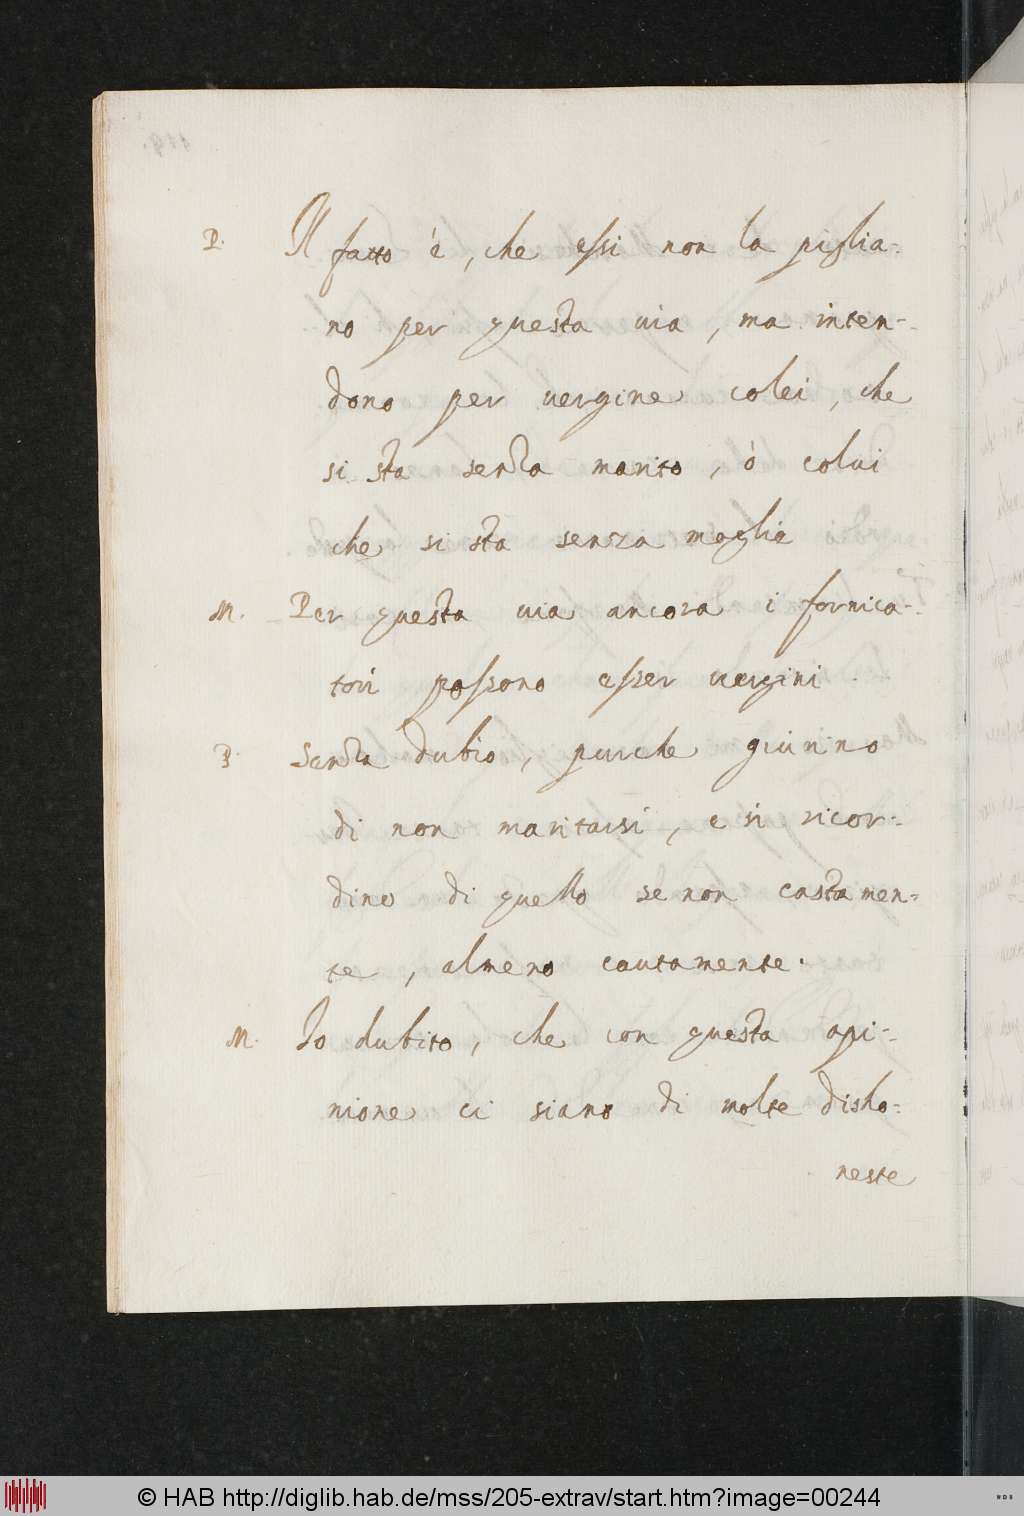 P. Il fatto è, che essi non la piglia-
no per questa uia, ma inten-
dono per uergine colei, che
si sta senza marito, ò colui
che si sta senza moglie
M. Per questa uia ancora i fornica-
tori possono esser uergini.
P. Senza dubio, purche giurino
di non maritarsi, e si ricor-
dino di quello se non castamen-
te, almeno cautamente.
M. Io dubito, che con questa opi-
nione ci siano di molte disho-
neste
© HAB http://diglib.hab.de/mss/205-extrav/start.htm?image=00244